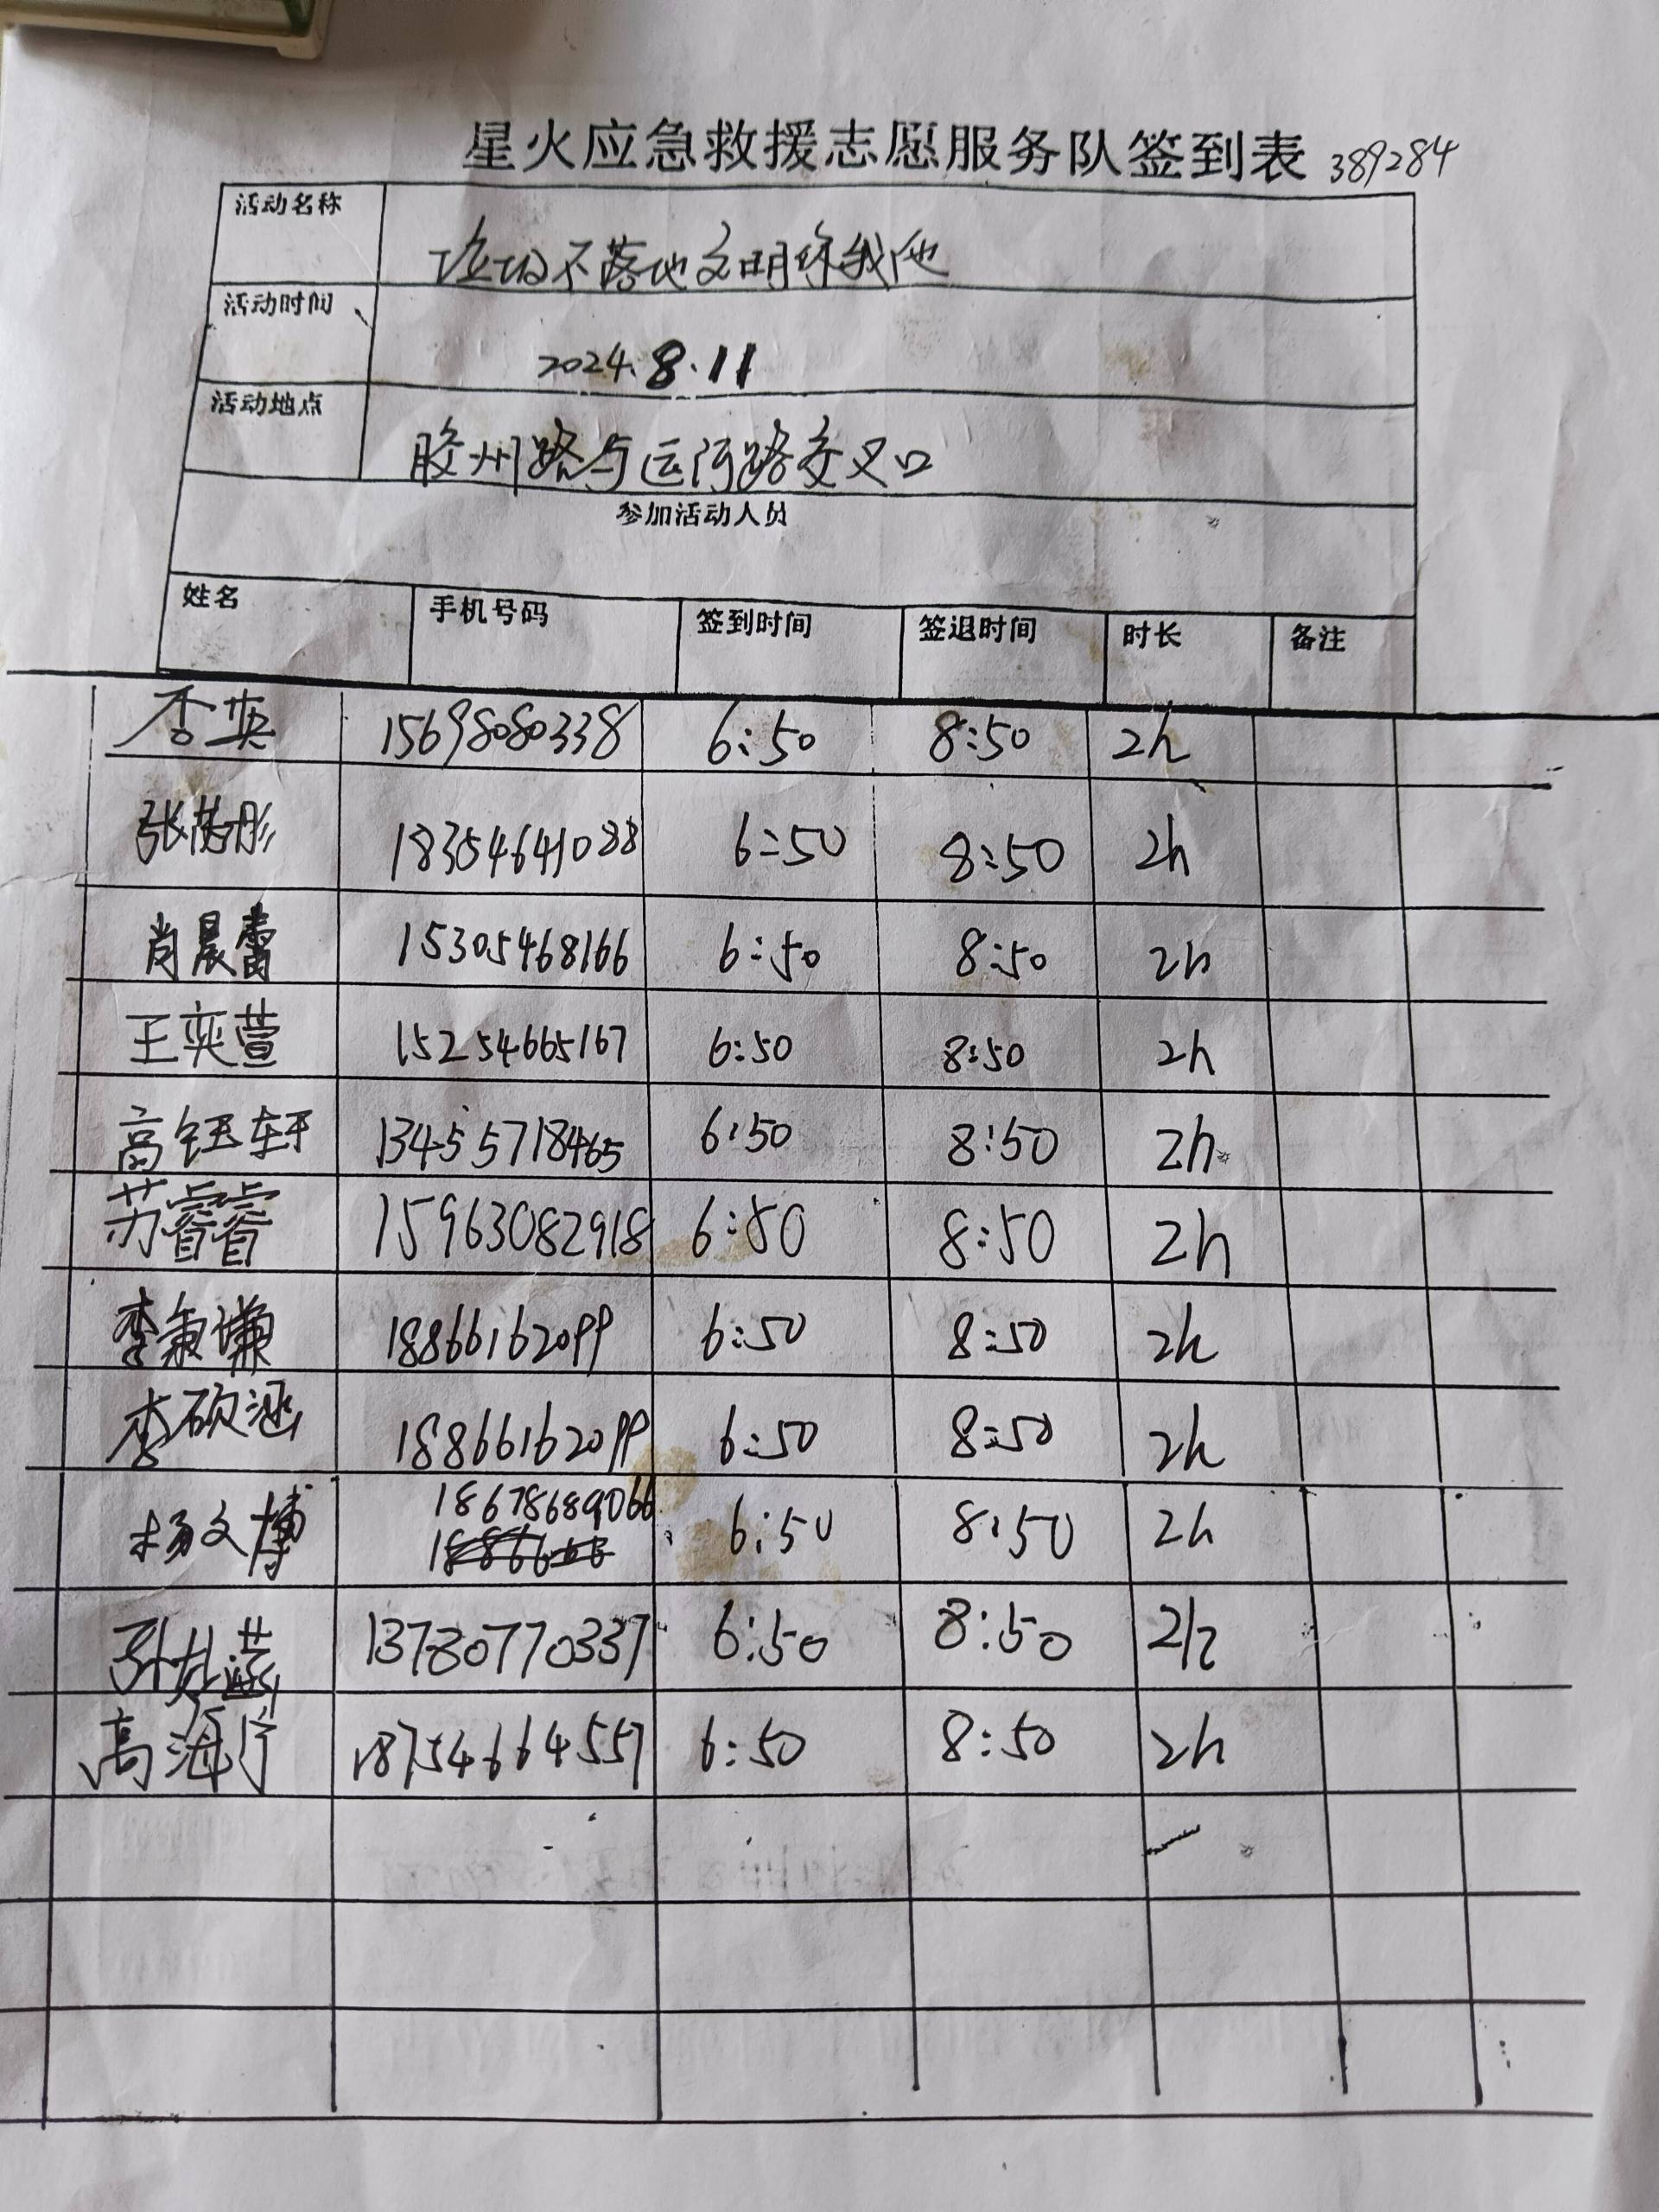 星火应急救援志愿服务队签到表 389284
活动名称 垃圾不落地文明你我他
活动时间 2024.8.11
活动地点 胶州路与运河路交叉口
参加活动人员
姓名 手机号码 签到时间 签退时间 时长 备注
李英 15698080338 6:50 8:50 2h
张 彤 18354641088 6:50 8:50 2h
肖晨蕾 15305468166 6:50 8:50 2h
王奕萱 15254665167 6:50 8:50 2h
高钰轩 13455718465 6:50 8:50 2h
苏睿睿 15963082918 6:50 8:50 2h
李秉谦 18866162099 6:50 8:50 2h
李硕涵 18866162099 6:50 8:50 2h
杨文博 18678689066 6:50 8:50 2h
13780770337 6:50 8:50 2h
高海宁 18754664557 6:50 8:50 2h